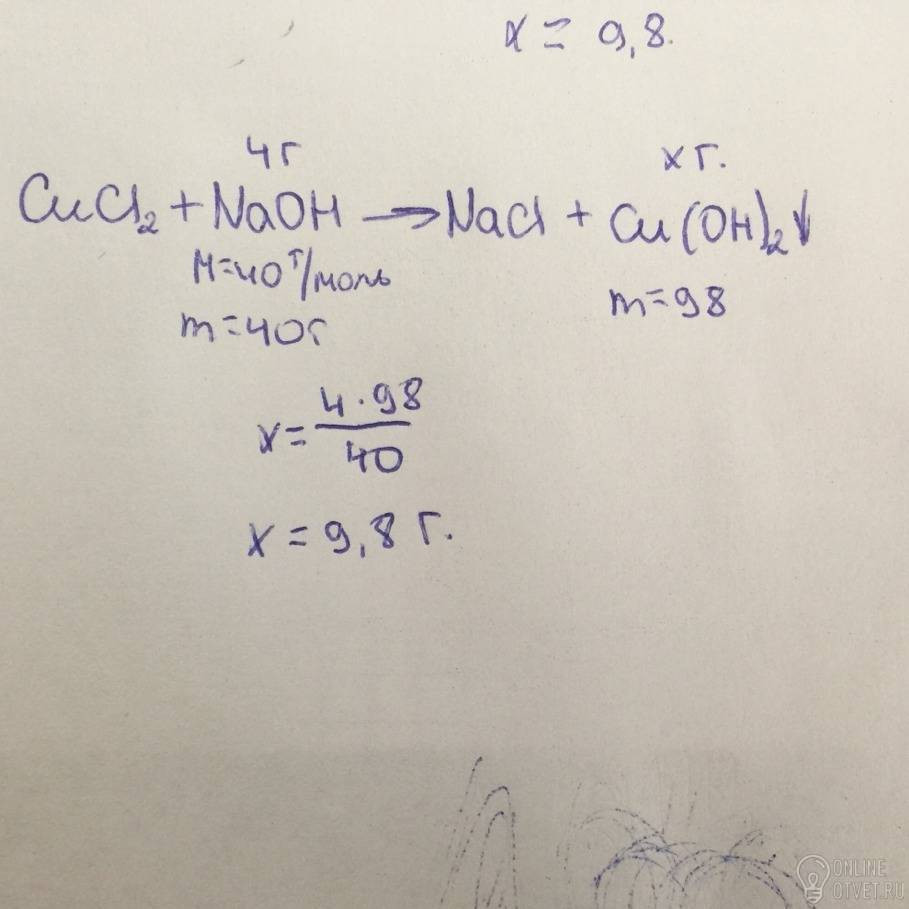 x = 9,8.
4г
xг.
CuCl₂ + NaOH → NaCl + Cu(OH)₂↓
M=40 г/моль
m=98
m=40г
x = 4·98/40
x = 9,8 г.
ONLINE
OTVET.RU